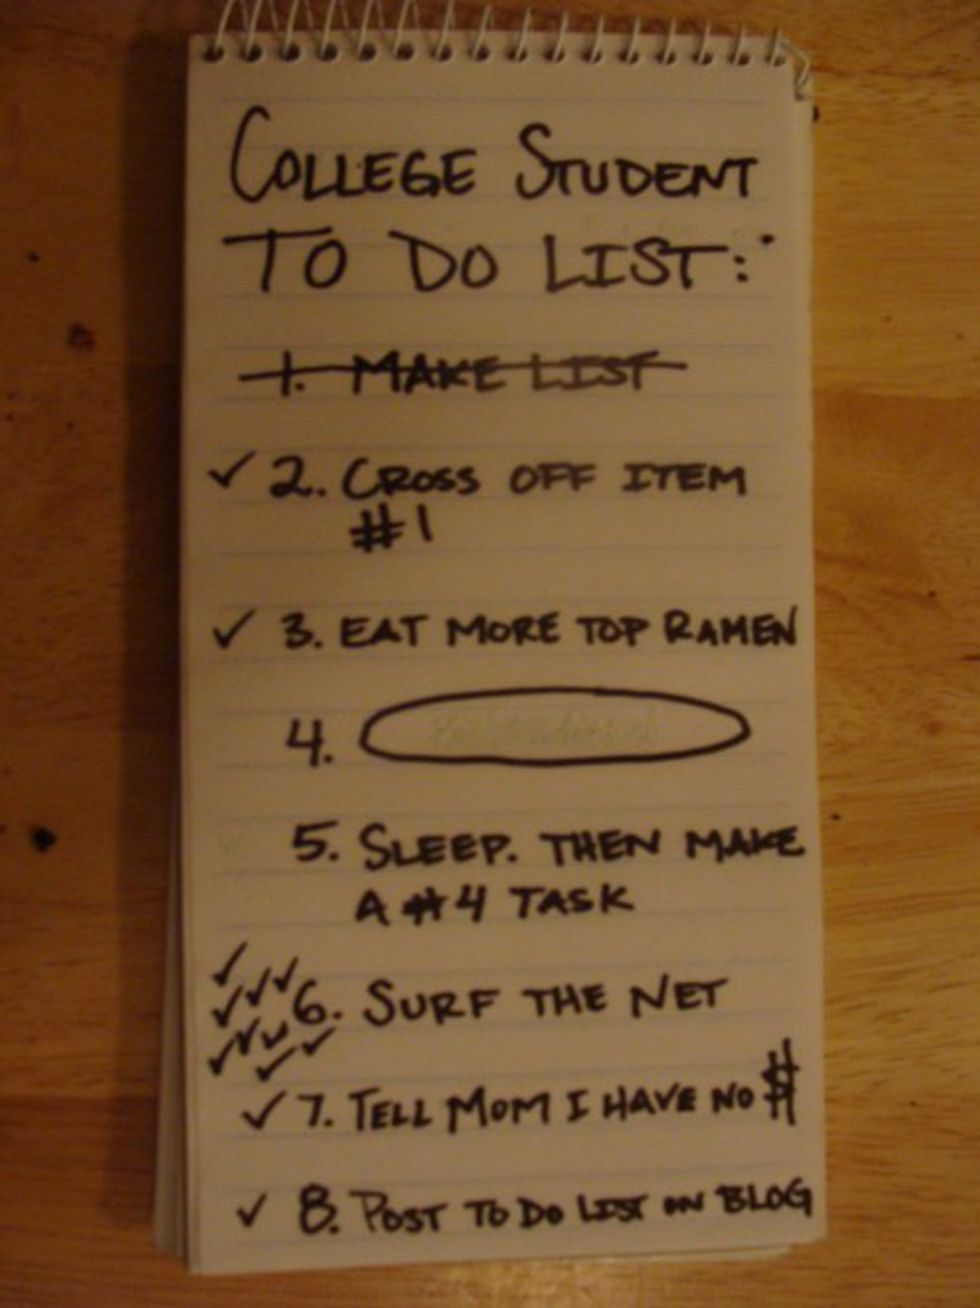 COLLEGE STUDENT
TO DO LIST:
1. MAKE LIST
✓ 2. CROSS OFF ITEM
#1
✓ 3. EAT MORE TOP RAMEN
4.
5. SLEEP. THEN MAKE
A #4 TASK
✓✓✓✓✓✓✓✓✓ 6. SURF THE NET
✓ 7. TELL MOM I HAVE NO $
✓ 8. POST TO DO LIST ON BLOG